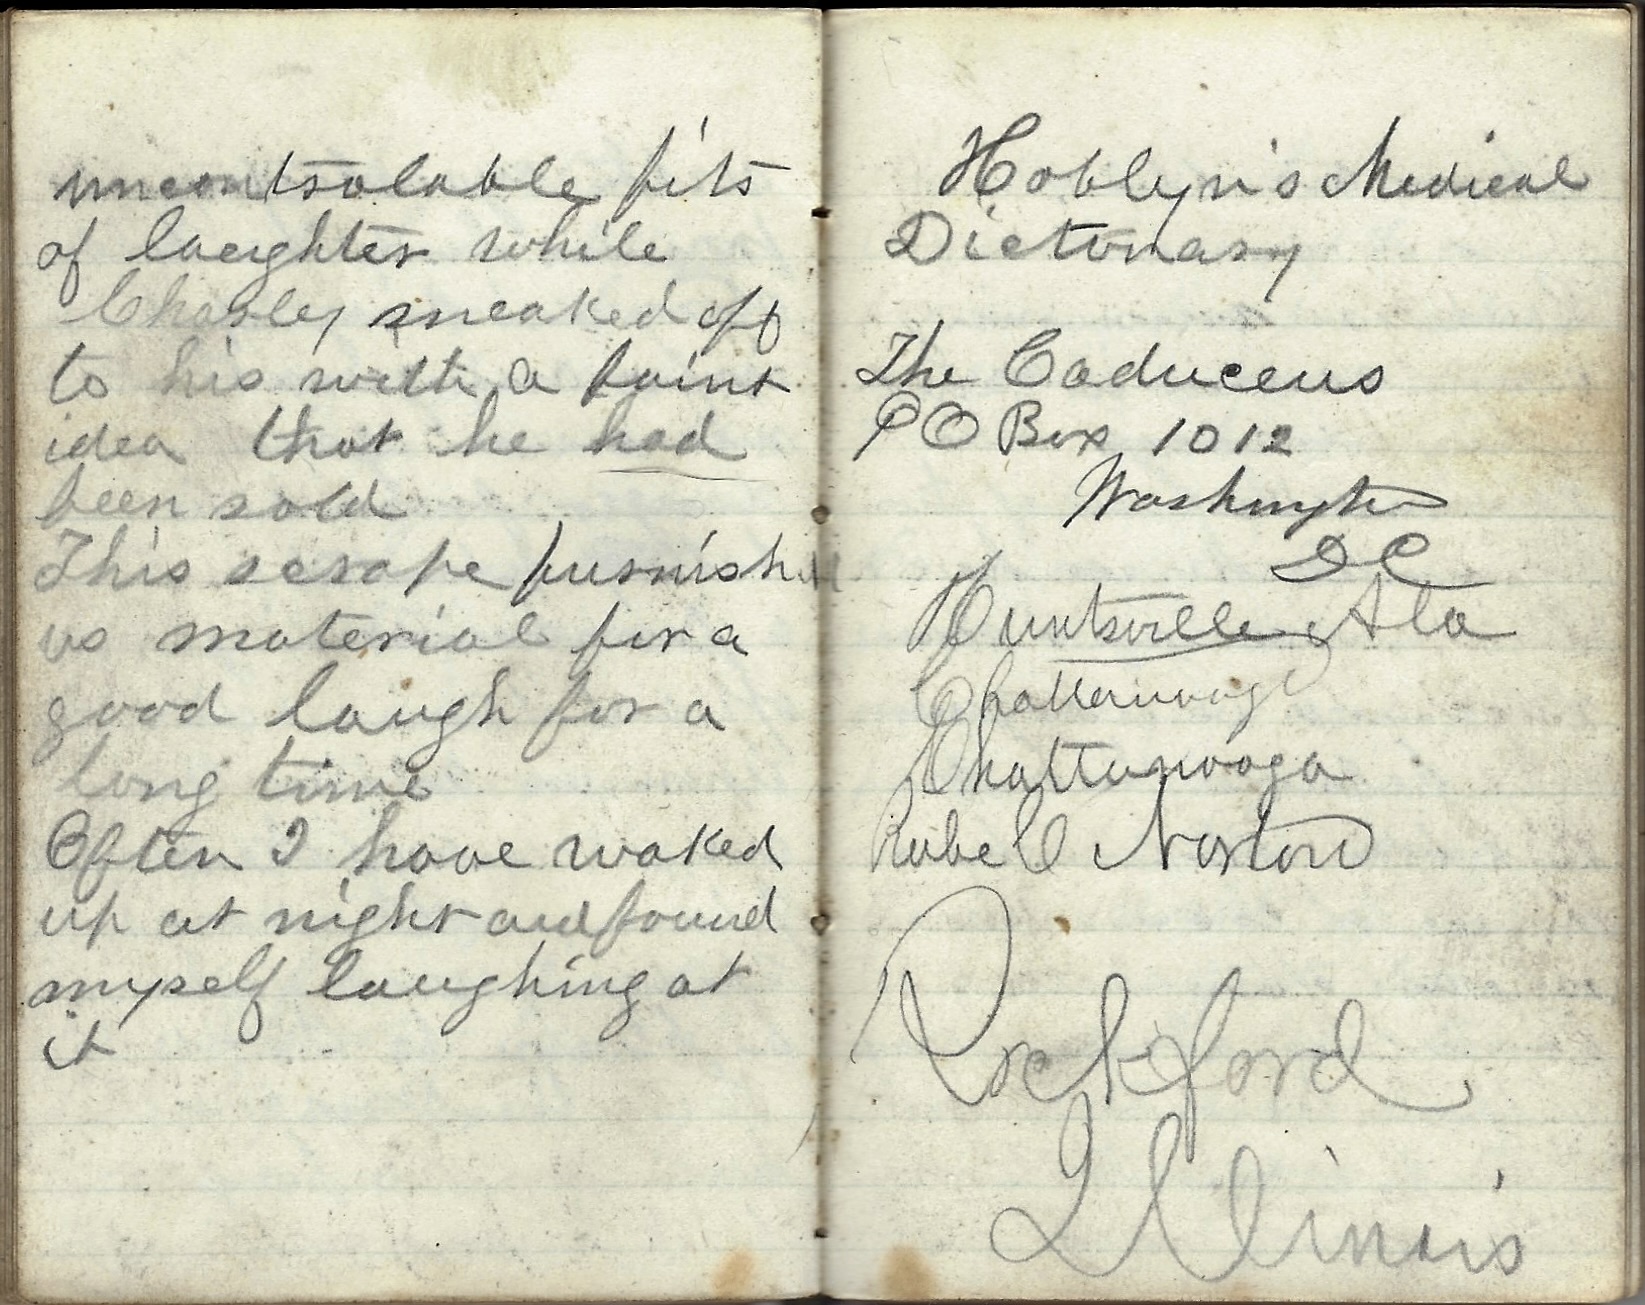 uncontrolable fits
of laughter while
Charley sneaked off
to his with a faint
idea that he had
been sold
This scrape furnished
us material for a
good laugh for a
long time
Often I have waked
up at night and found
myself laughing at
it
Hoblyn's Medical
Dictonary
The Caduceus
PO Box 1012
Washington
DC
Huntsville Ala
Chattanooga
Chattanooga
Rube C Norton
Rockford
Illinois